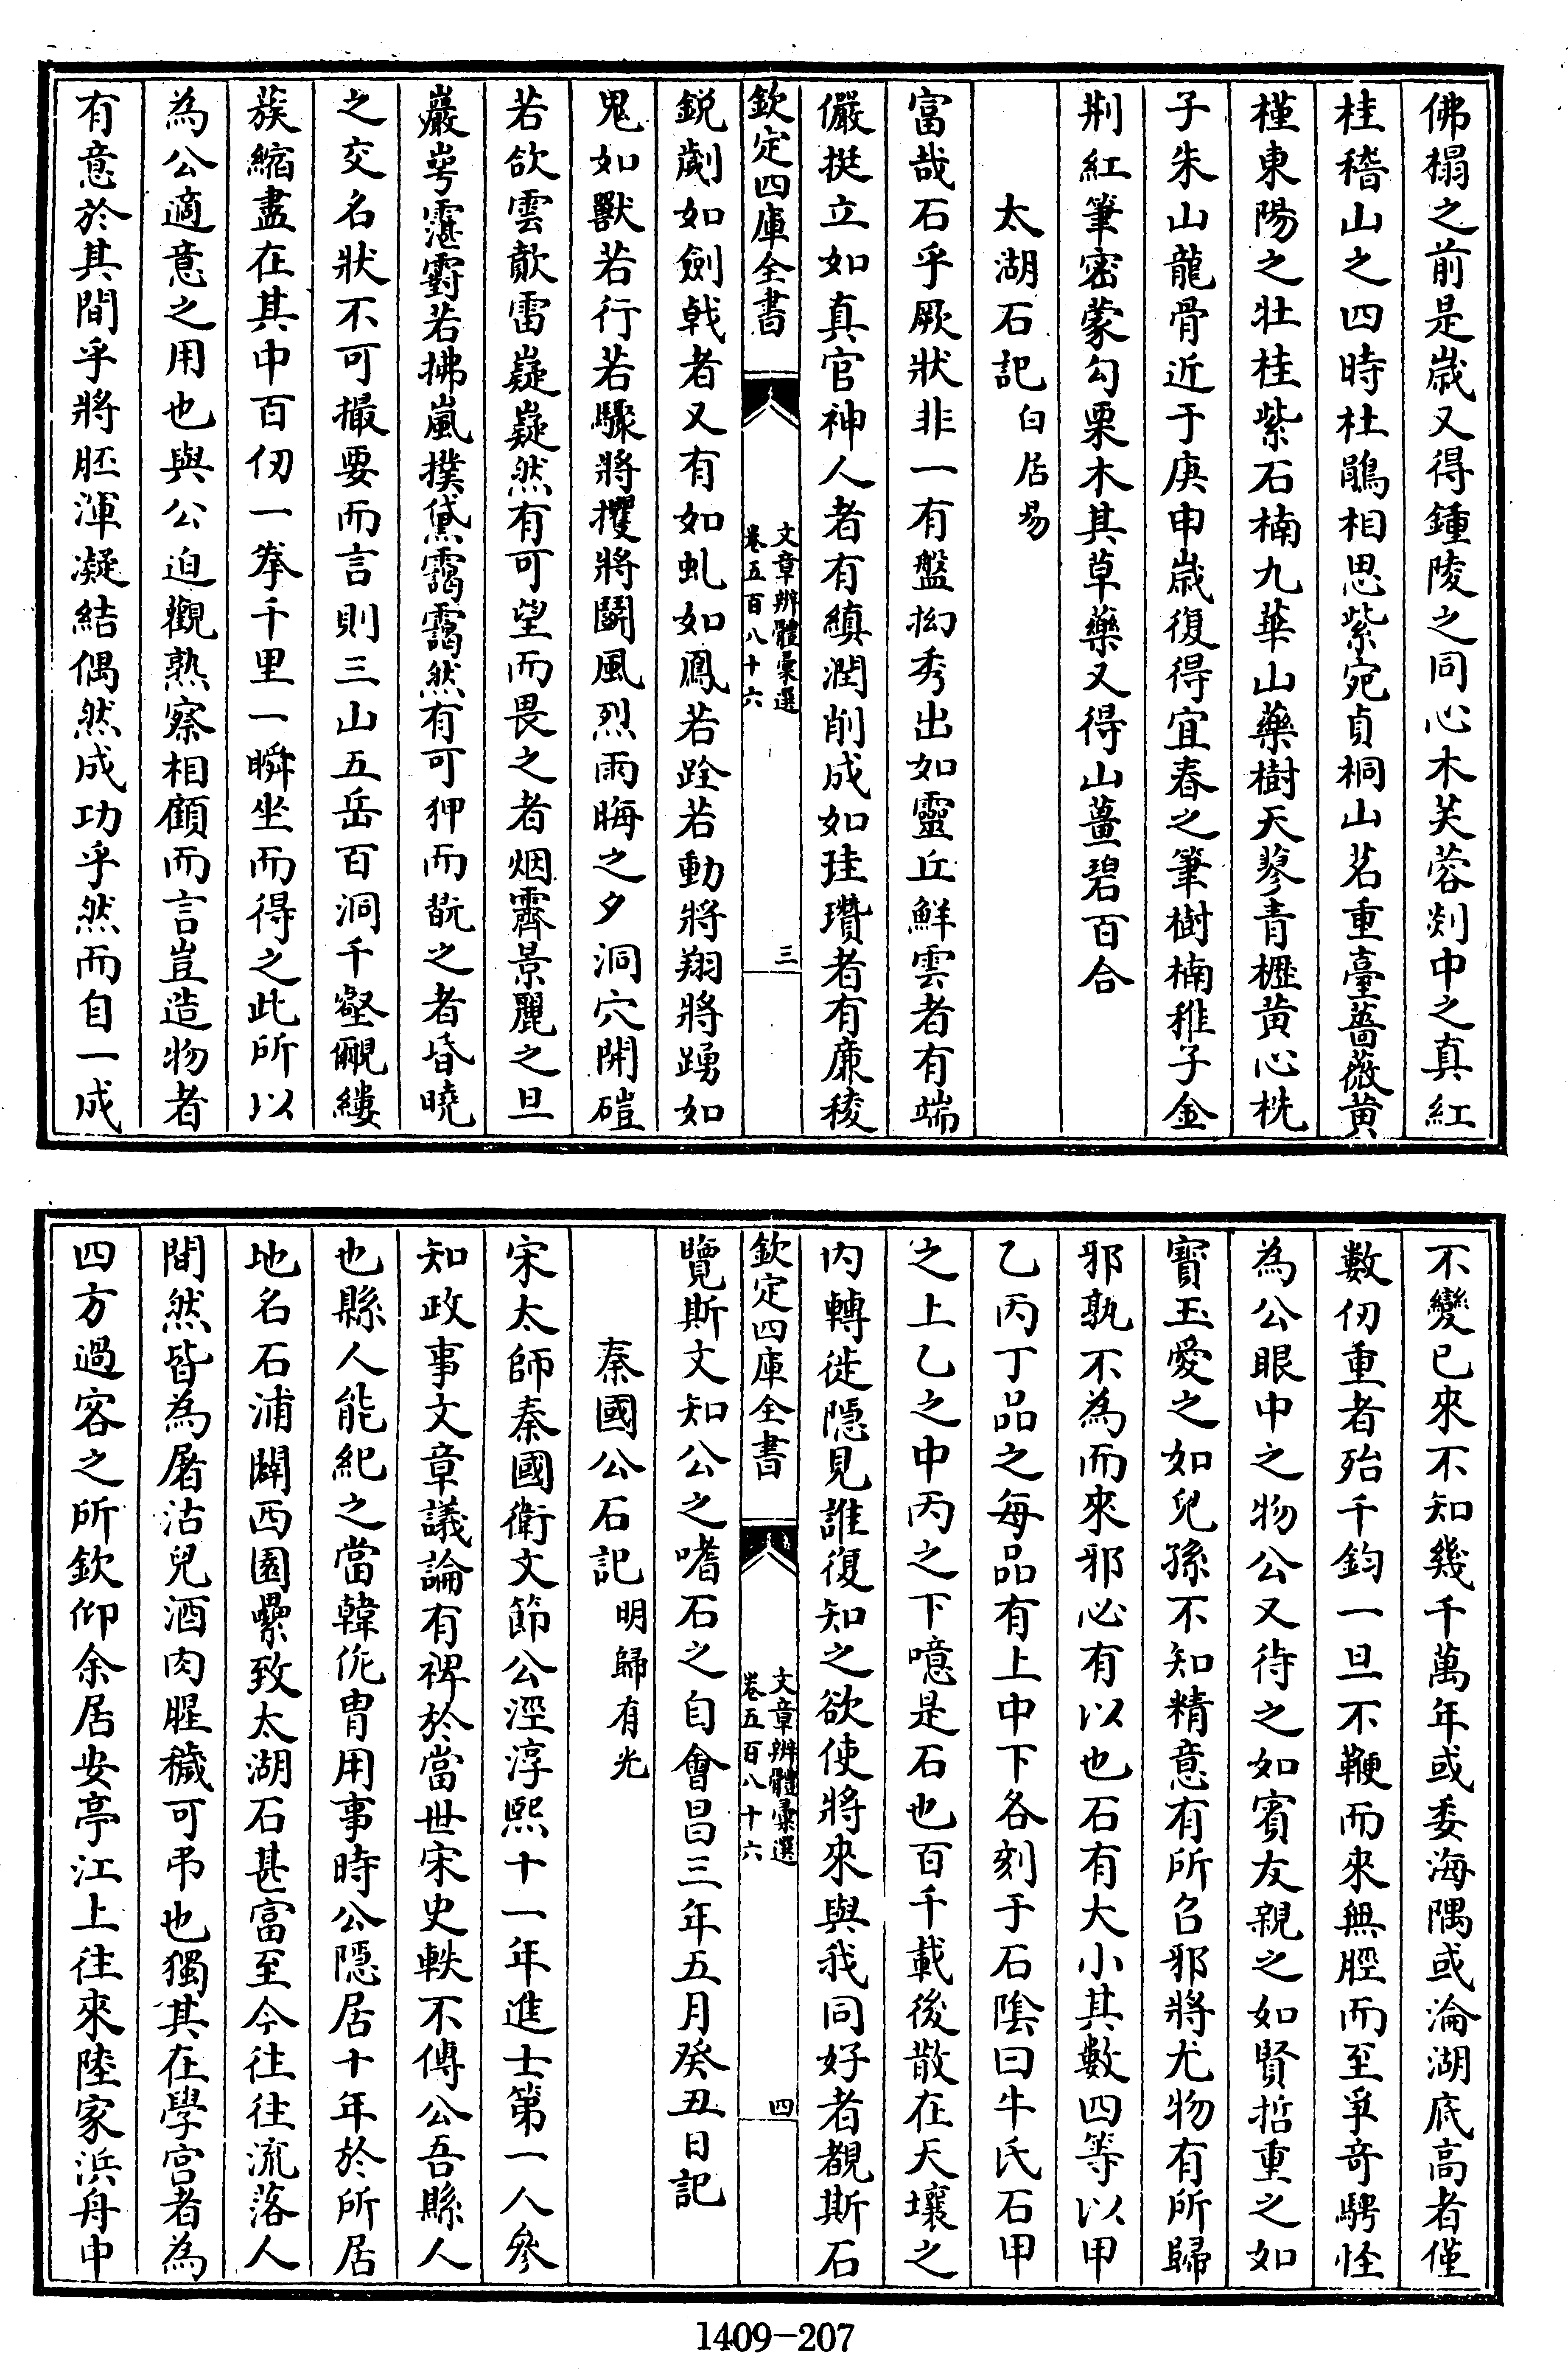 佛榻之前是歲又得鍾陵之同心木芙蓉剡中之真紅
桂稽山之四時杜鵑相思紫宛貞桐山茗重臺薔薇黄
槿東陽之牡桂紫石楠九華山藥樹天蓼青櫪黄心㭠
子朱山龍骨近于庚申歲復得宜春之筆樹楠稚子金
荆紅筆密蒙勾栗木其草藥又得山薑碧百合
太湖石記白居易
富哉石乎厥狀非一有盤拗秀出如靈丘鮮雲者有端
儼挺立如真官神人者有縝潤削成如珪瓚者有廉稜
欽定四庫全書
文章辨體彚選
卷五百八十六
三
鋭劌如劍戟者又有如虬如鳳若跧若動將翔將踴如
鬼如獸若行若驟將攫將鬭風烈雨晦之夕洞穴開磑
若欱雲歕雷嶷嶷然有可望而畏之者烟霽景麗之旦
巖㟧霮䨴若拂嵐撲黛靄靄然有可狎而翫之者昏曉
之交名狀不可撮要而言則三山五岳百洞千壑覼縷
蔟縮盡在其中百仞一拳千里一瞬坐而得之此所以
為公適意之用也與公迫觀熟察相顧而言豈造物者
有意於其間乎將胚渾凝結偶然成功乎然而自一成
不變已來不知幾千萬年或委海隅或淪湖底高者僅
數仞重者殆千鈞一旦不鞭而來無脛而至爭竒騁怪
為公眼中之物公又待之如賓友親之如賢哲重之如
寶玉愛之如兒孫不知精意有所召邪將尤物有所歸
邪孰不為而來邪必有以也石有大小其數四等以甲
乙丙丁品之每品有上中下各刻于石陰曰牛氏石甲
之上乙之中丙之下噫是石也百千載後散在天壤之
内轉徙隱見誰復知之欲使將來與我同好者覩斯石
欽定四庫全書
文章辨體彚選
卷五百八十六
四
覽斯文知公之嗜石之自會昌三年五月癸丑日記
秦國公石記明歸有光
宋太師秦國衛文節公涇淳熙十一年進士第一人參
知政事文章議論有裨於當世宋史軼不傳公吾縣人
也縣人能紀之當韓侂胄用事時公隱居十年於所居
地名石浦闢西園纍致太湖石甚富至今往往流落人
間然皆為屠沽兒酒肉腥穢可弔也獨其在學宫者為
四方過客之所欽仰余居安亭江上往來陸家浜舟中
1409—207